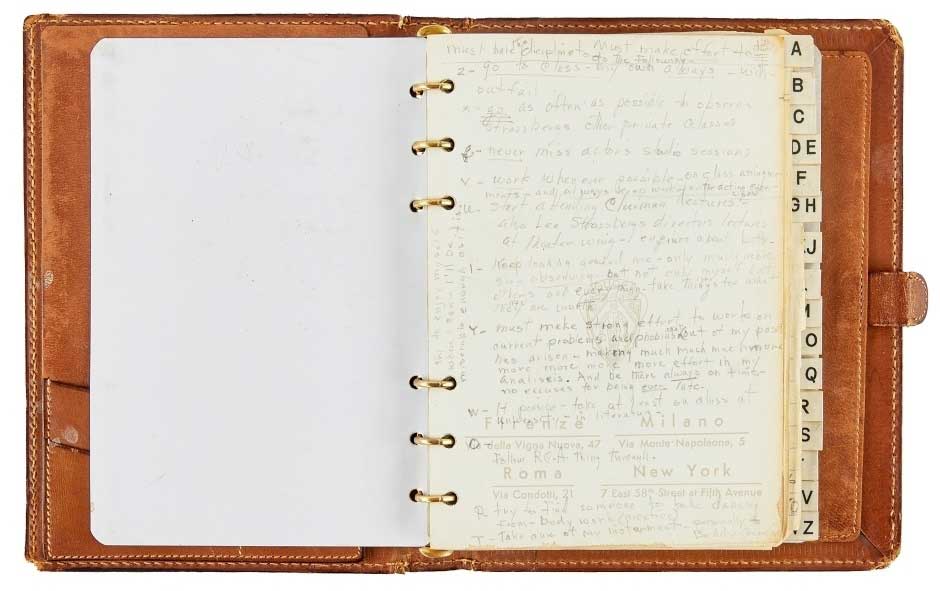 must have discipline Must make effort to
do the following –
Z – go to class – my own always – with-
out fail
x – go as often as possible to observe
Strassberg's other private classes
g – never miss actors studio sessions
V – work whenever possible – on class assignments
– and always keep working on the acting exercises
U – start attending Clurman lectures –
also Lee Strassbergs directors lectures
at theater wing – enquire about both –
l – keep looking around me – only much more
so – observing – but not only myself but
others and everything – take things for what
they are worth
Y – must make strong effort to work on
current problems and phobias that out of my past
has arisen – making much much much more
more more make more effort in my
analisis. And be there always on time –
no excuses for being ever late.
W – if possible – take at least one class at
university – in literature –
O –
follow R.C.A thing through.
R – try to find someone to take dancing
from – body work (creative)
T – take care of my instrument – personally &
bodily
try to enjoy myself
when I can I'll be
miserable enough as it is
Firenze Milano
Via della Vigna Nuova, 47 Via Monte Napoleone, 5
Roma New York
Via Condotti, 21 7 East 58th Street at Fifth Avenue
A
B
C
DE
F
GH
IJ
M
O
Q
R
S
V
Z